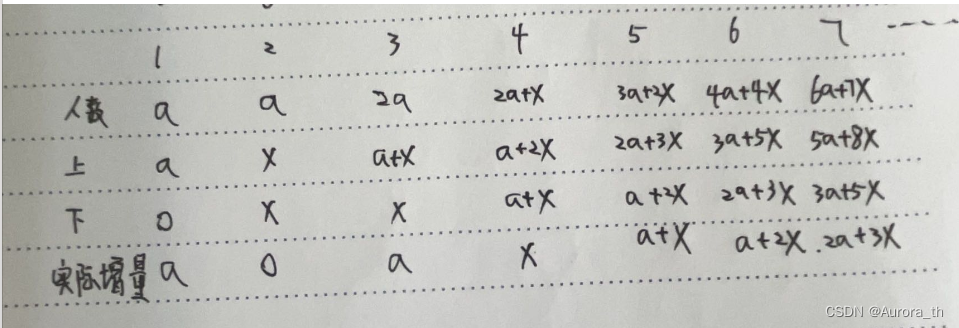 1 2 3 4 5 6 7 ----
人数 a a 2a 2a+x 3a+2x 4a+4x 6a+7x
上 a x a+x a+2x 2a+3x 3a+5x 5a+8x
下 0 x x a+x a+2x 2a+3x 3a+5x
实际增量 a 0 a x a+x a+2x 2a+3x
CSDN @Aurora_th